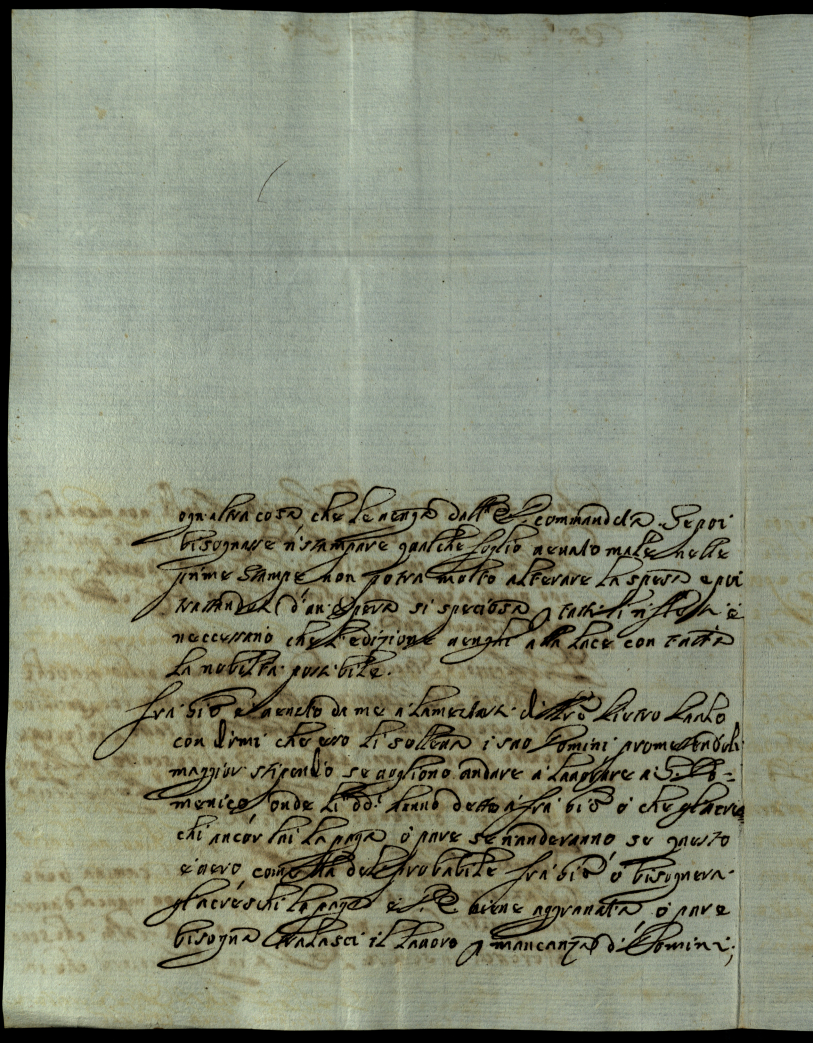 ogn altra cosa che le venga dall' commandata. Se poi
bisognasse ristampare qualche foglio venuto male nelle
prime stampe non potra molto alterare la spesa e poi
trattandosi d'un opera si speciosa tutti li è
neccessario che l'edizione venghi alla luce con tutta
la nobiltà possibile.
fra bio è venuto da me a lamentarsi di Pietro Paulo
con dirmi che esso li solleva i suo homini promettendoli
maggior stipendio se vogliono andare a lavorare a S. Do=
menico, onde li dd.i hanno detto a fra bio ò che gl'acres
chi ancor lui la paga ò pure se n'anderanno se questo
è vero come ha del probabile fra bio ò bisognera
gl'acreschi la paga e viene aggravata ò pure
bisogna tralasci il lavoro p mancanza d'homini;